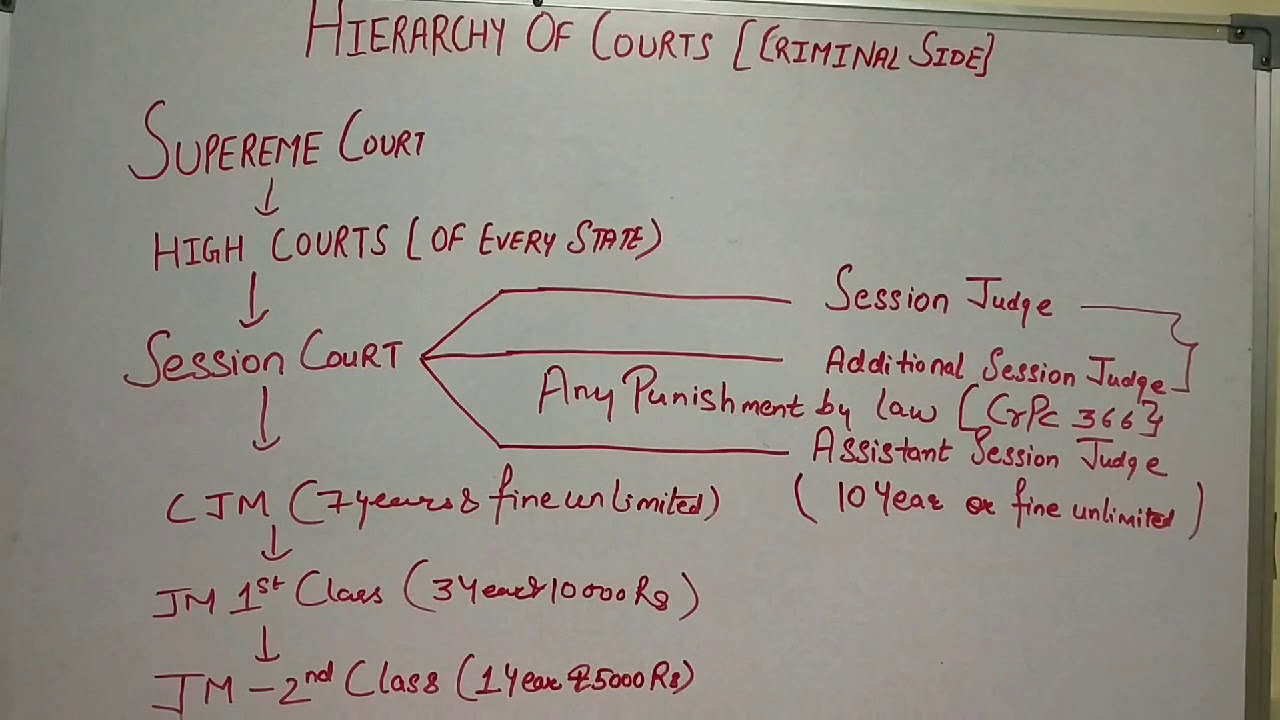 HIERARCHY OF COURTS [CRIMINAL SIDE]
SUPEREME COURT
↓
HIGH COURTS (OF EVERY STATE)
↓
Session COURT
Session Judge
Additional Session Judge
Any Punishment by law [CrPc 366}
Assistant Session Judge
(10 Year or fine unlimited)
↓
CJM (7 years & fine unlimited)
↓
JM 1st Class (3 Year & 10000 Rs)
↓
JM - 2nd Class (1 Year & 5000 Rs)